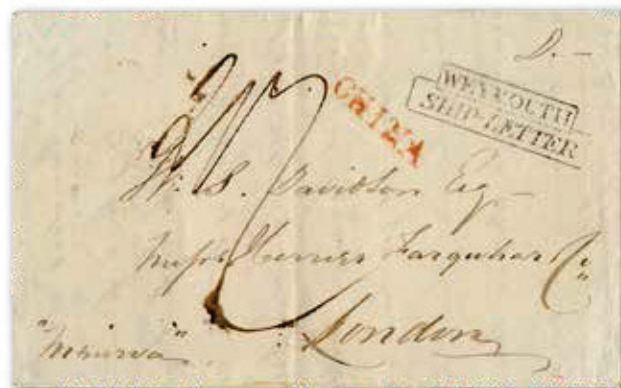 CHINA
WEYMOUTH
SHIP-LETTER
W. S. Davidson Esq
Messrs Herries Farquhar & Co
London
"Minerva"